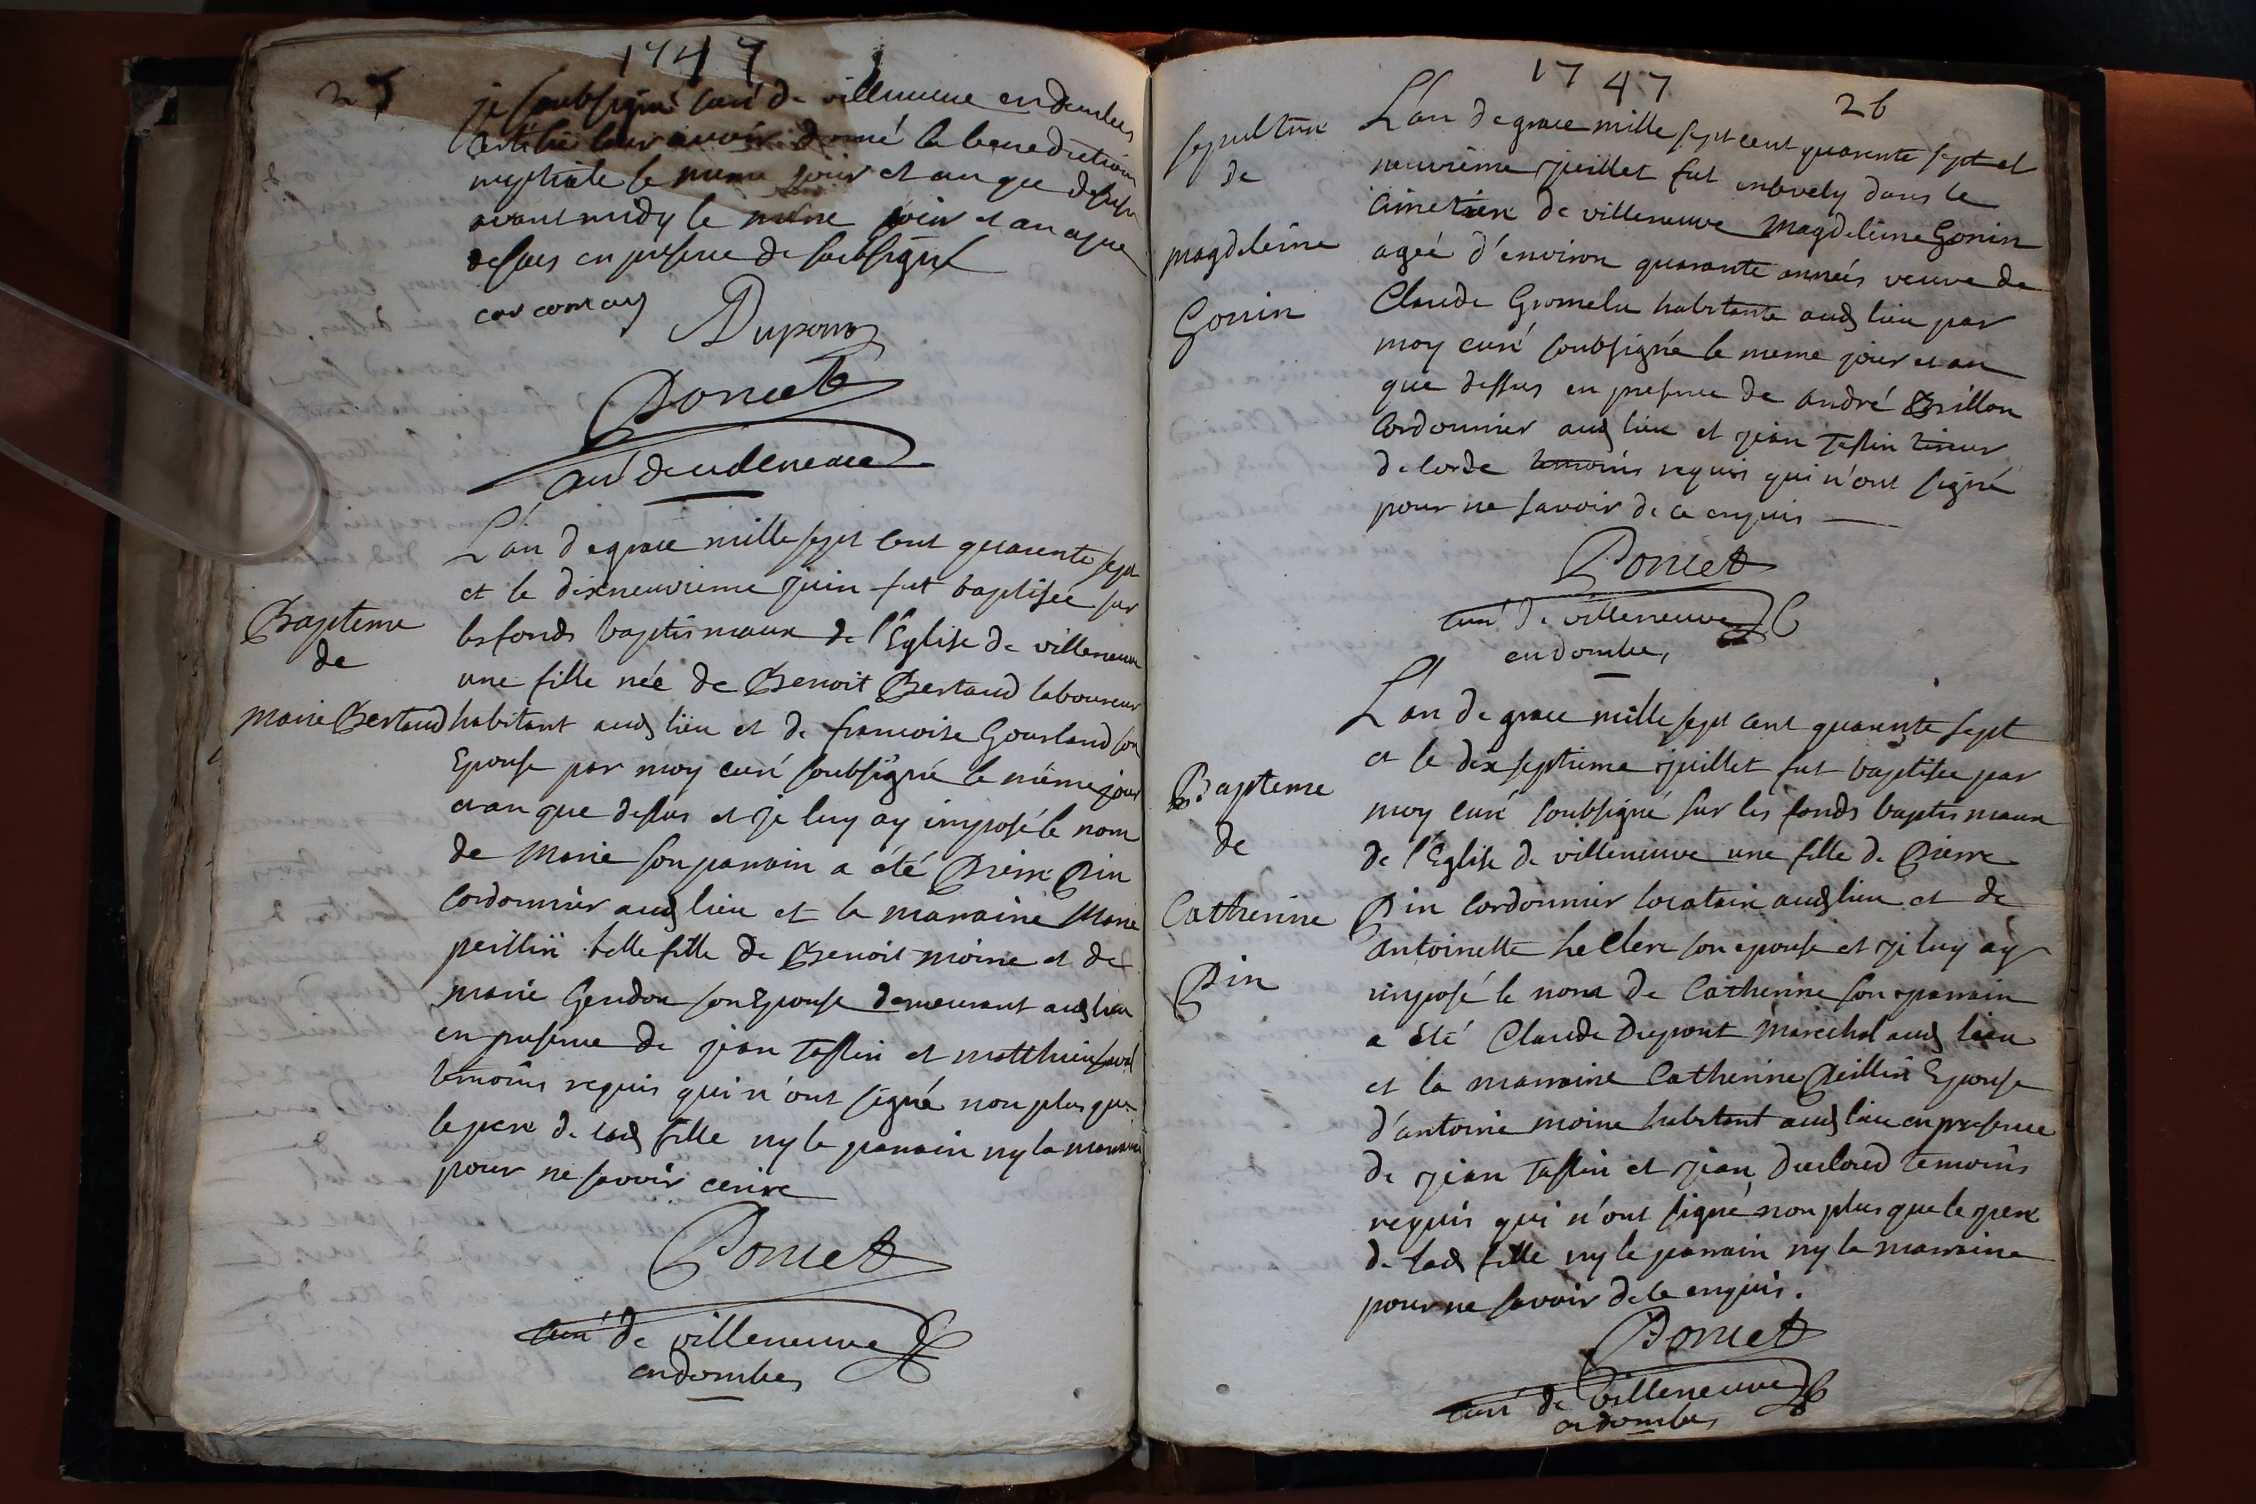 1747
25
je soubsigné curé de villeneuve en dombes
certifie leur avoir donné la benediction
nuptiale le meme jour et an que dessus
avant midy le meme jour et an que
dessus en presence de soubsignés
Dupont
Poncet
curé de villeneuve
L'an de grace mille sept cent quarente sept
et le dixneuvieme juin fut baptisée sur
les fonds baptismaux de l'Eglise de villeneuve
Bapteme
de
marie Bertaud
une fille née de Benoit Bertaud laboureur
habitant aud lieu et de francoise Gourland son
Epouse par moy curé soubsigné le même jour
et an que dessus et je luy ay imposé le nom
de Marie son parrain a été Pierre Pin
Cordonnier aud lieu et la marraine Marie
peillin belle fille de Benoit moine et de
marie Gendou son Epouse demeurant aud lieu
en presence de jean Taffin et matthieu
temoins requis qui n'ont signé non plus que
le pere de lad fille ny le parrain ny la marraine
pour ne savoir ecrire
Poncet
curé de villeneuve
en dombes
1747
26
sepulture
de
magdeleine
Gonin
L'an de grace mille sept cent quarente sept et
neuvieme juillet fut ensevely dans le
cimetiere de villeneuve Magdeleine Gonin
ageé d'environ quarante années veuve de
Claude Gromelu habitante aud lieu par
moy curé soubsigné le meme jour et an
que dessus en presence de andré Brillon
Cordonnier aud lieu et jean Taffin tireur
de corde temoins requis qui n'ont signé
pour ne savoir de ce enquis
Poncet
curé de villeneuve
en dombes
Bapteme
de
Catherine
Pin
L'an de grace mille sept cent quarente sept
et le dix septieme juillet fut baptisée par
moy curé soubsigné sur les fonds baptismaux
de l'Eglise de villeneuve une fille de Pierre
Pin Cordonnier locatair aud lieu et de
antoinette Leclerc son epouse et je luy ay
imposé le nom de Catherine son parrain
a été Claude Dupont Marechal aud lieu
et la marraine Catherine Peillin Epouse
d'antoine moine habitant aud lieu en presence
de jean Taffin et jean Ducloud temoins
requis qui n'ont signé non plus que le pere
de lad fille ny le parrain ny la marraine
pour ne savoir de ce enquis.
Poncet
curé de villeneuve
en dombes